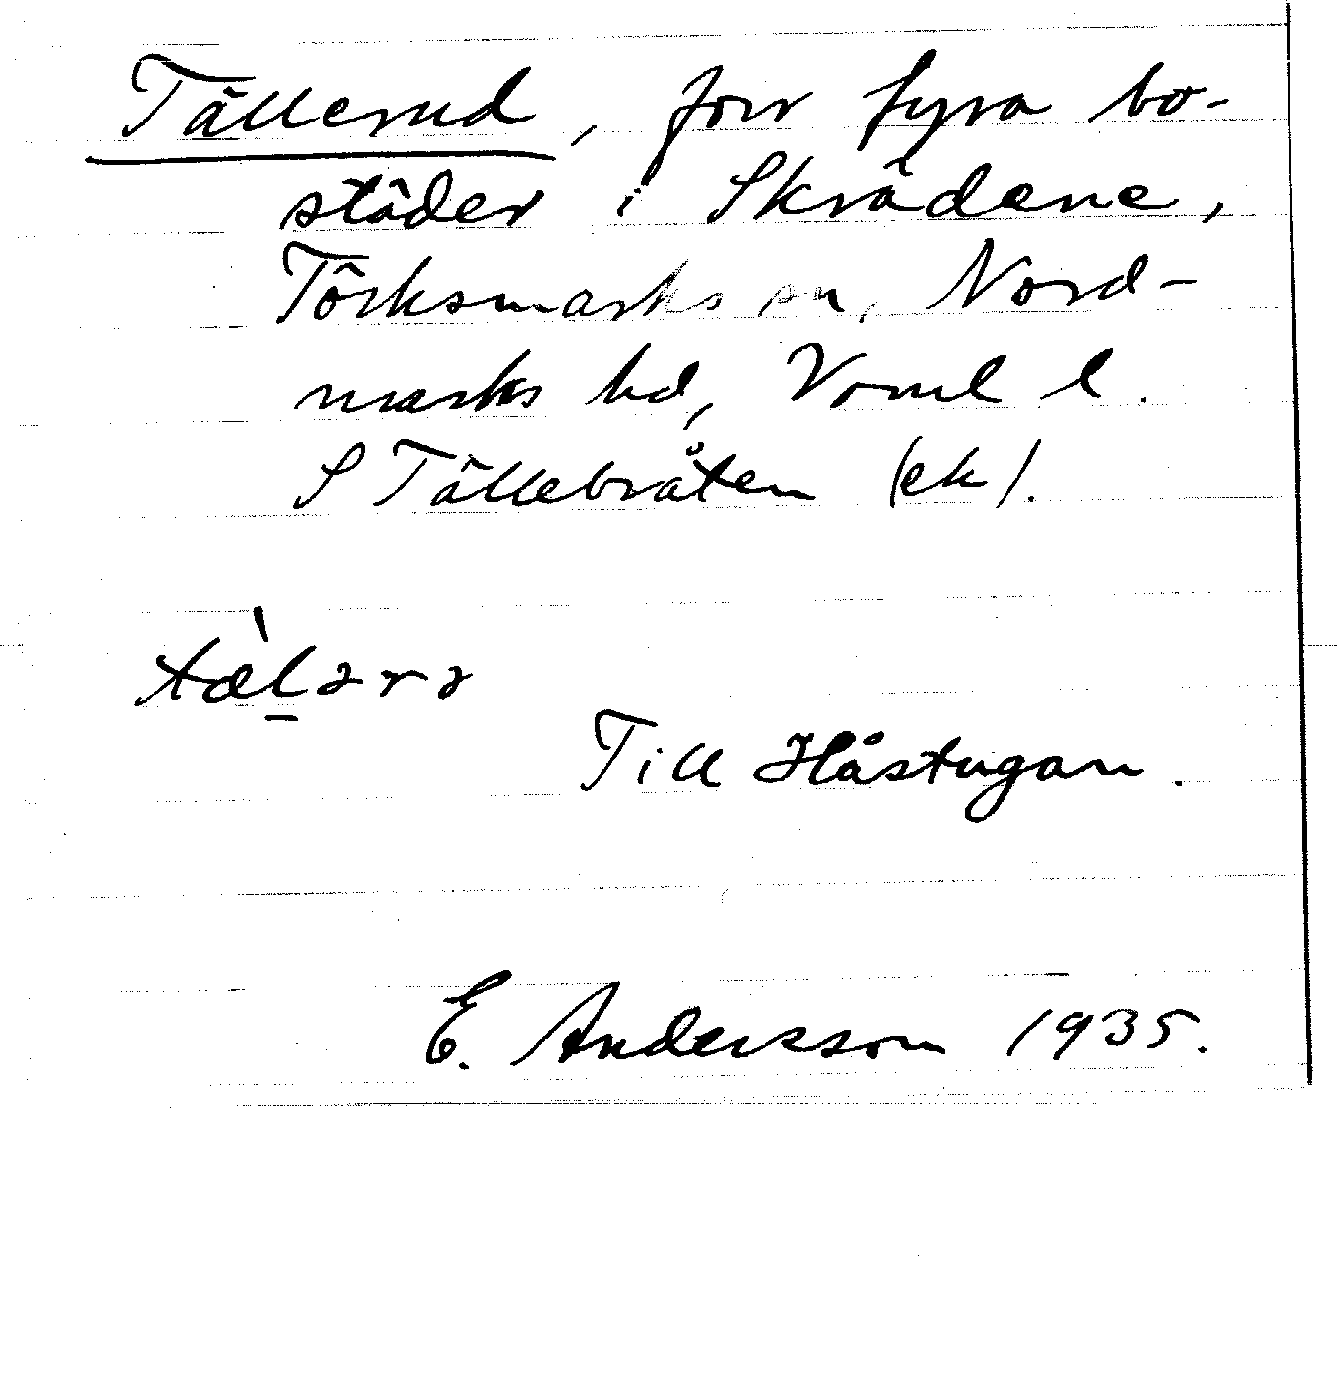 Tällerud, förr fyra bo-
städer i Skrädene,
Törksmarks sn, Nord-
marks hd, Vrml l.
S Tällebråten (ek).
tæ̀l̠ərə
Till Håstugan.
E. Andersson 1935.